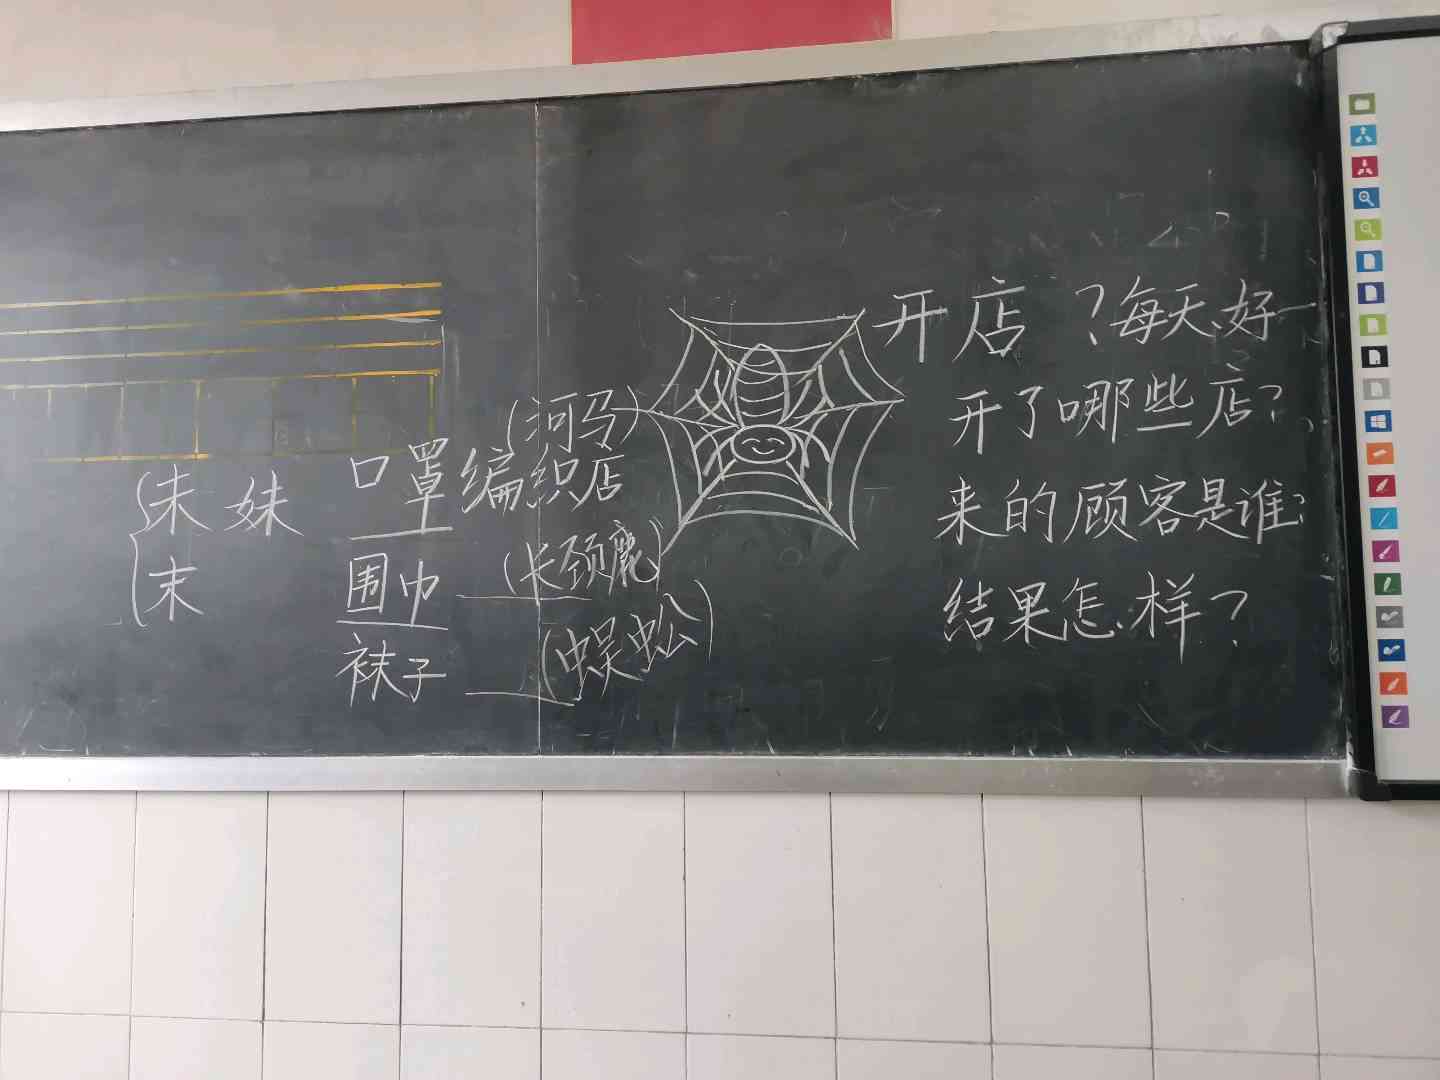 开店？每天好
开了哪些店？
来的顾客是谁
结果怎样？
(河马)
口罩编织店
围巾 (长颈鹿)
袜子 (蜈蚣)
未 妹
末